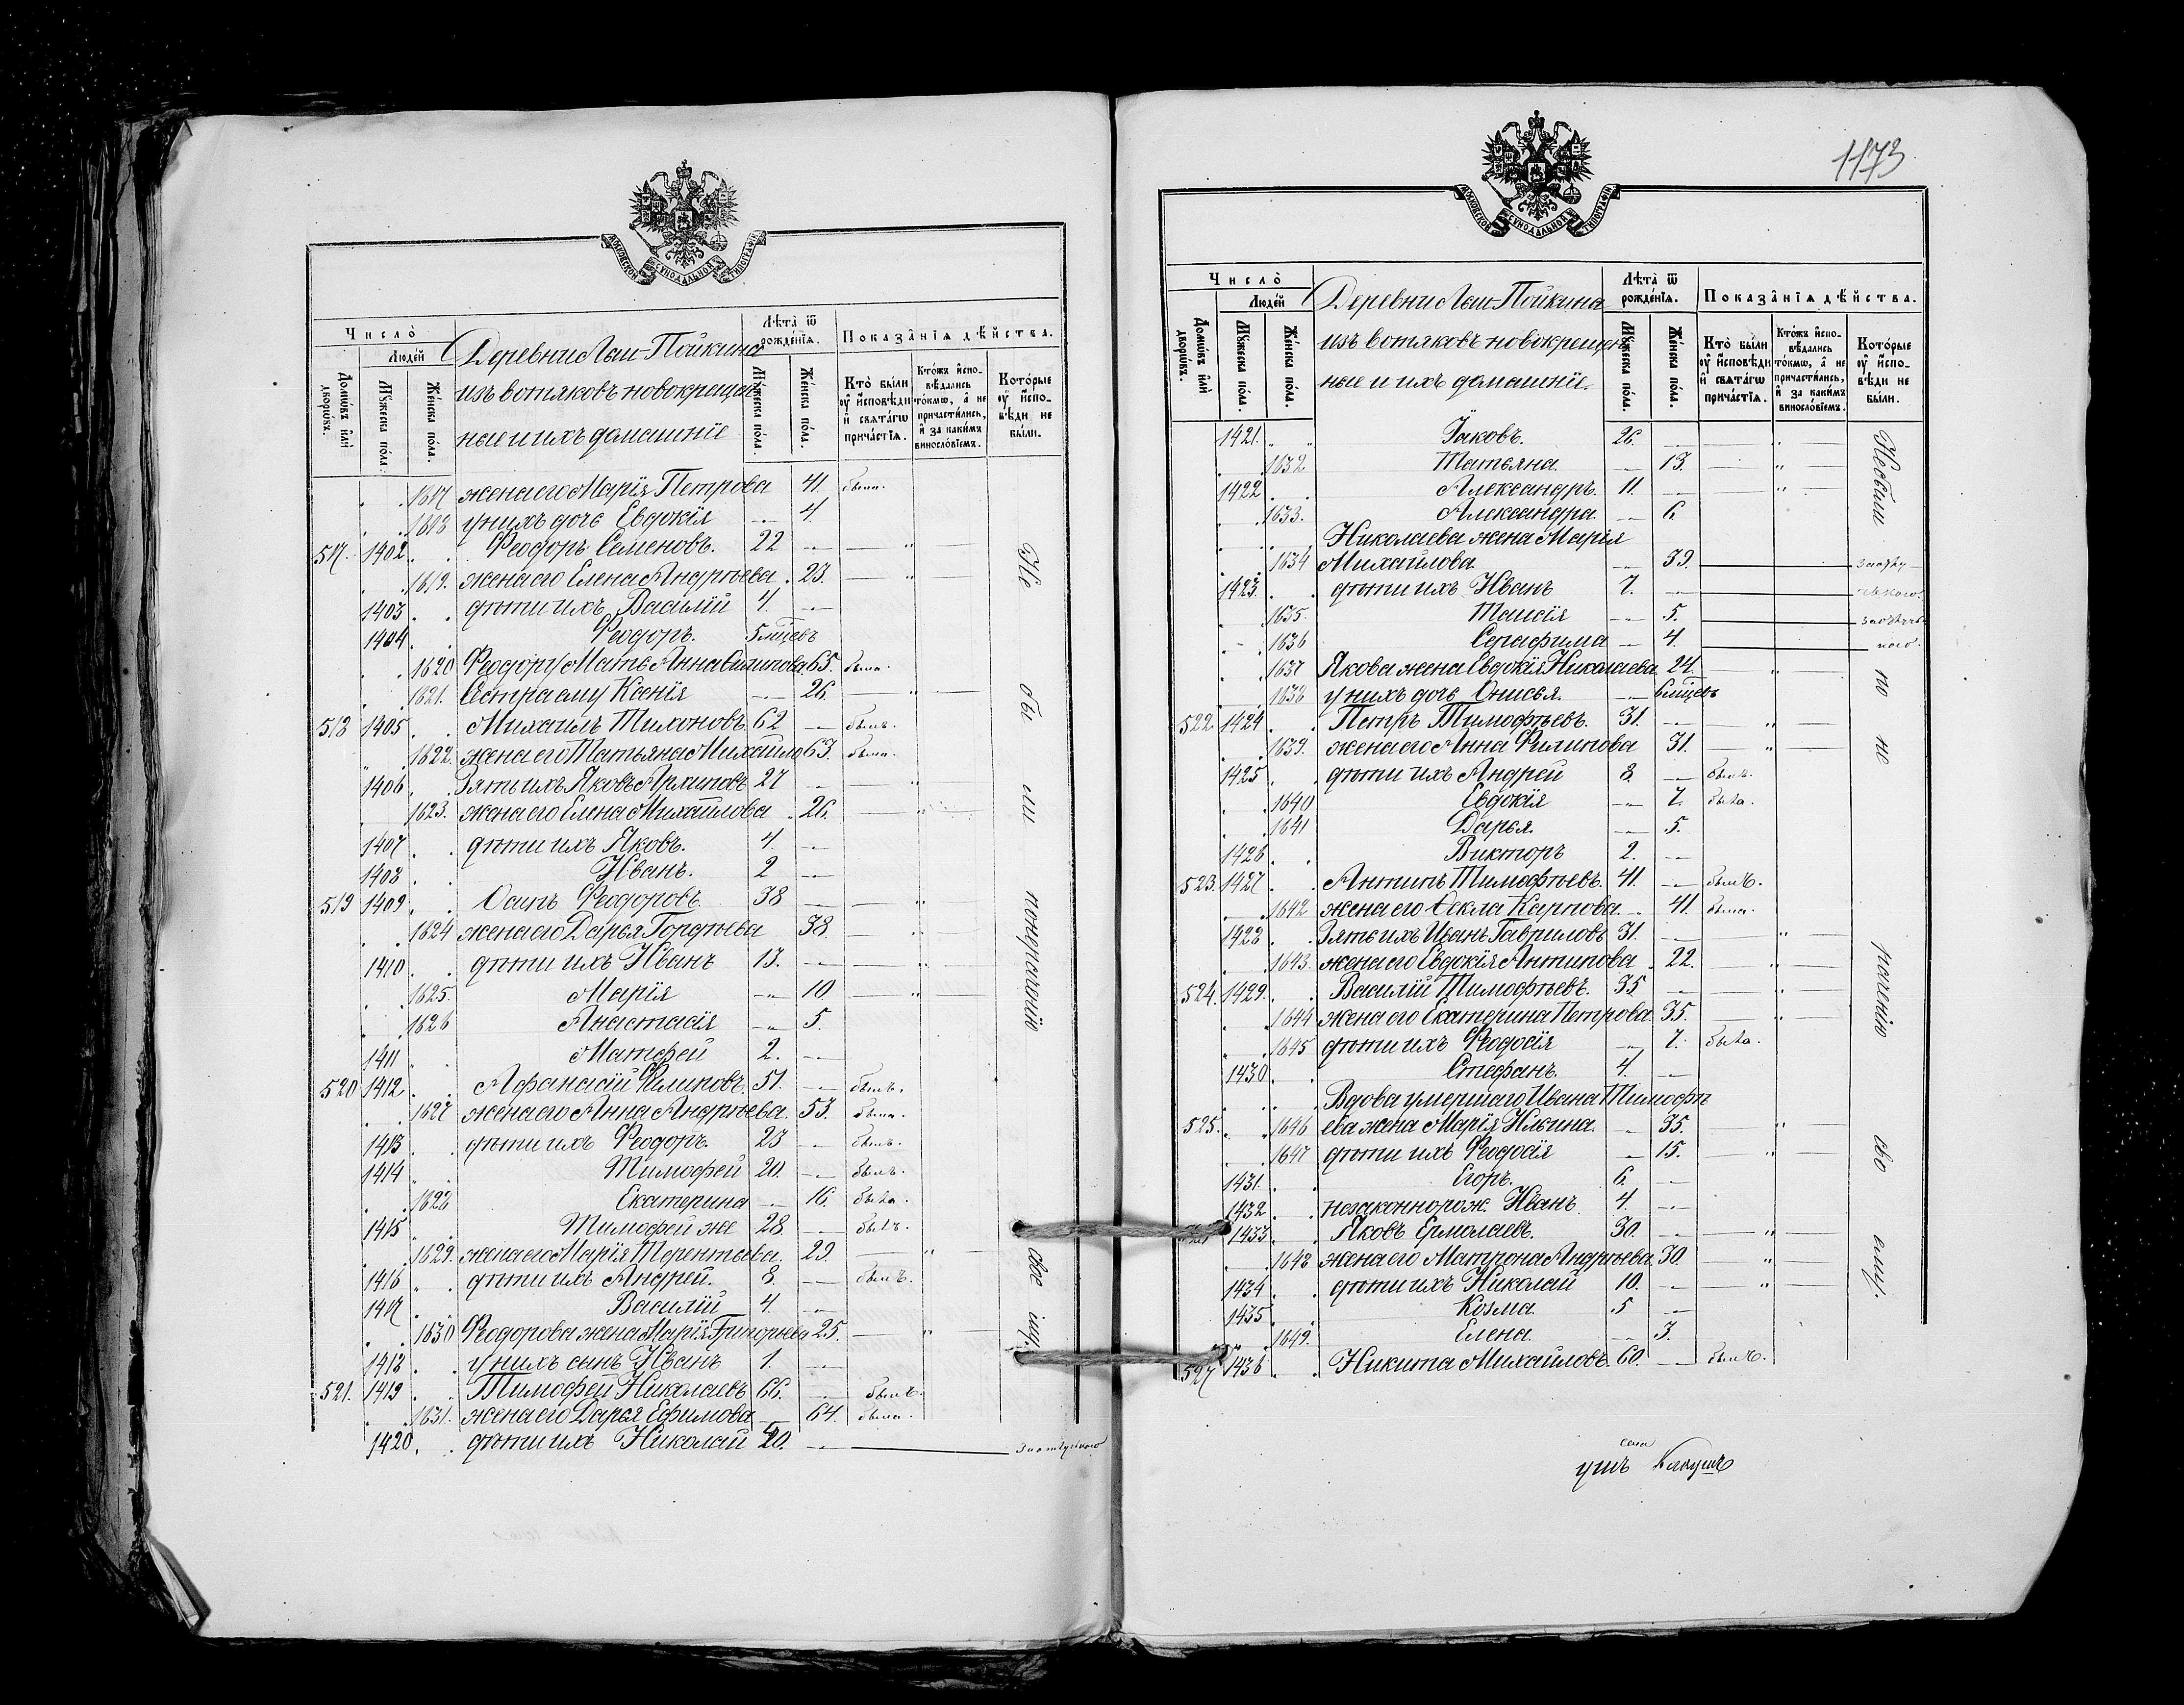 МОСКОВСКОЙ СУНОДАЛЬНОЙ ТИПОГРАФІИ
Число̀
Людей
Домѡвъ и҆лѝ дворѡвъ.
Мꙋ́жеска по́ла.
Же́нска по́ла.
Деревни Лыш-Пойкина
изъ вотяковъ новокрещен
ные и ихъ домашніе
Лѣта̀ ѿ рожде́нїѧ.
Мꙋ́жеска по́ла.
Же́нска по́ла.
Показа̂нїѧ дѣ́йства.
Кто̀ бы́ли ᲂу҆ и҆сповѣ́ди и҆ свѧта́гѡ прича́стїѧ.
Кто́жъ и҆спо-вѣ́дались то́кмѡ, а҆ не причасти́лись, и҆ за каки́мъ винослові́емъ.
Кото́рые ᲂу҆ и҆спо-вѣ́ди не бы́ли.
1617 жена его Марія Петрова 41. была.
1618 у нихъ дочь Евдокія 4.
517. 1402. Феодоръ Семеновъ. 22
1619. жена его Елена Андреева. 23.
1403 дѣти ихъ Василій 4.
1404 Феодоръ. 5 мѣсяцевъ
1620 Феодору Мать Анна Филипова 65. была.
1621. Сестра ему Ксенія 26.
518 1405 Михаилъ Тихоновъ 62 былъ.
1622. жена его Татьяна Михайло 63. была.
1406 Зять ихъ Яковъ Архиповъ 27
1623. жена его Елена Михайлова 26.
1407 дѣти ихъ Яковъ. 4.
1408 Иванъ. 2
519 1409 Осипъ Феодоровъ. 38
1624 жена его Дарья Гордѣева 38.
1410 дѣти ихъ Иванъ 13.
1625. Марія 10.
1626 Анастасія 5.
1411 Матфей 2.
520 1412 Афанасій Филиповъ. 51. былъ.
1627 жена его Анна Андреева. 53. была.
1413 дѣти ихъ Феодоръ. 23 былъ.
1414 Тимофей 20. былъ.
1628 Екатерина 16. была.
1415 Тимофей же 28. былъ.
1629. жена его Марія Терентьева. 29.
1416 дѣти ихъ Андрей. 8. былъ.
1417 Василій 4.
1630 Феодорова жена Марія Григорьева 25.
1418 у нихъ сынъ Иванъ 1.
521. 1419 Тимофей Николаевъ 66. былъ.
1631. жена его Дарья Ефимова 64. была.
1420 дѣти ихъ Николай 20. за отлучкою
Не бы ли по нерачѣнію сво ему.
1173
МОСКОВСКОЙ СУНОДАЛЬНОЙ ТИПОГРАФІИ
Число̀
Людей
Домѡвъ и҆лѝ дворѡвъ.
Мꙋ́жеска по́ла.
Же́нска по́ла.
Деревни Лыш-Пойкина
изъ вотяковъ новокрещен
ные и ихъ домашніе.
Лѣта̀ ѿ рожде́нїѧ.
Мꙋ́жеска по́ла.
Же́нска по́ла.
Показа̂нїѧ дѣ́йства.
Кто̀ бы́ли ᲂу҆ и҆сповѣ́ди и҆ свѧта́гѡ прича́стїѧ.
Кто́жъ и҆спо-вѣ́дались то́кмѡ, а҆ не причасти́лись, и҆ за каки́мъ винослові́емъ.
Кото́рые ᲂу҆ и҆спо-вѣ́ди не бы́ли.
1421. Іаковъ. 26.
1632 Татьяна. 13.
1422 Александръ. 11.
1633. Александра. 6.
Николаева жена Марія
1634 Михайлова 39. за отлу
1423. дѣти ихъ Иванъ 7. чкою.
1635. Таисія 5. за отлуч
1636 Серафима 4. кою.
1637 Якова жена Евдокія Николаева. 24.
1638 у нихъ дочь Онисья. 6 мѣсяцевъ
522 1424 Петръ Тимофѣевъ. 31.
1639. жена его Анна Филипова 31.
1425 дѣти ихъ Андрей 8. былъ.
1640 Евдокія 7. была.
1641 Дарья. 5.
1426 Викторъ 2.
523. 1427 Антипъ Тимофѣевъ. 41. былъ.
1642 жена его Фекла Карпова. 41. была.
1428 Зять ихъ Иванъ Гавриловъ 31.
1643. жена его Евдокія Антипова 22.
524. 1429. Василій Тимофѣевъ. 35
1644 жена его Екатерина Петрова. 35.
1645 дѣти ихъ Феодосія 7. была.
1430 Стефанъ. 4.
Вдова умершаго Ивана Тимофѣ
525. 1646 ева жена Марія Ильина. 35.
1647 дѣти ихъ Феодосія 15.
1431. Егоръ. 6.
1432 незаконнорож. Иванъ. 4.
1433 Яковъ Ермолаевъ. 30.
1648 жена его Матрона Андреева. 30.
1434 дѣти ихъ Николай 10.
1435 Козма. 5
1649. Елена 3.
527 1436 Никита Михайловъ. 60. былъ.
Не были по не рачѣнію сво ему.
села